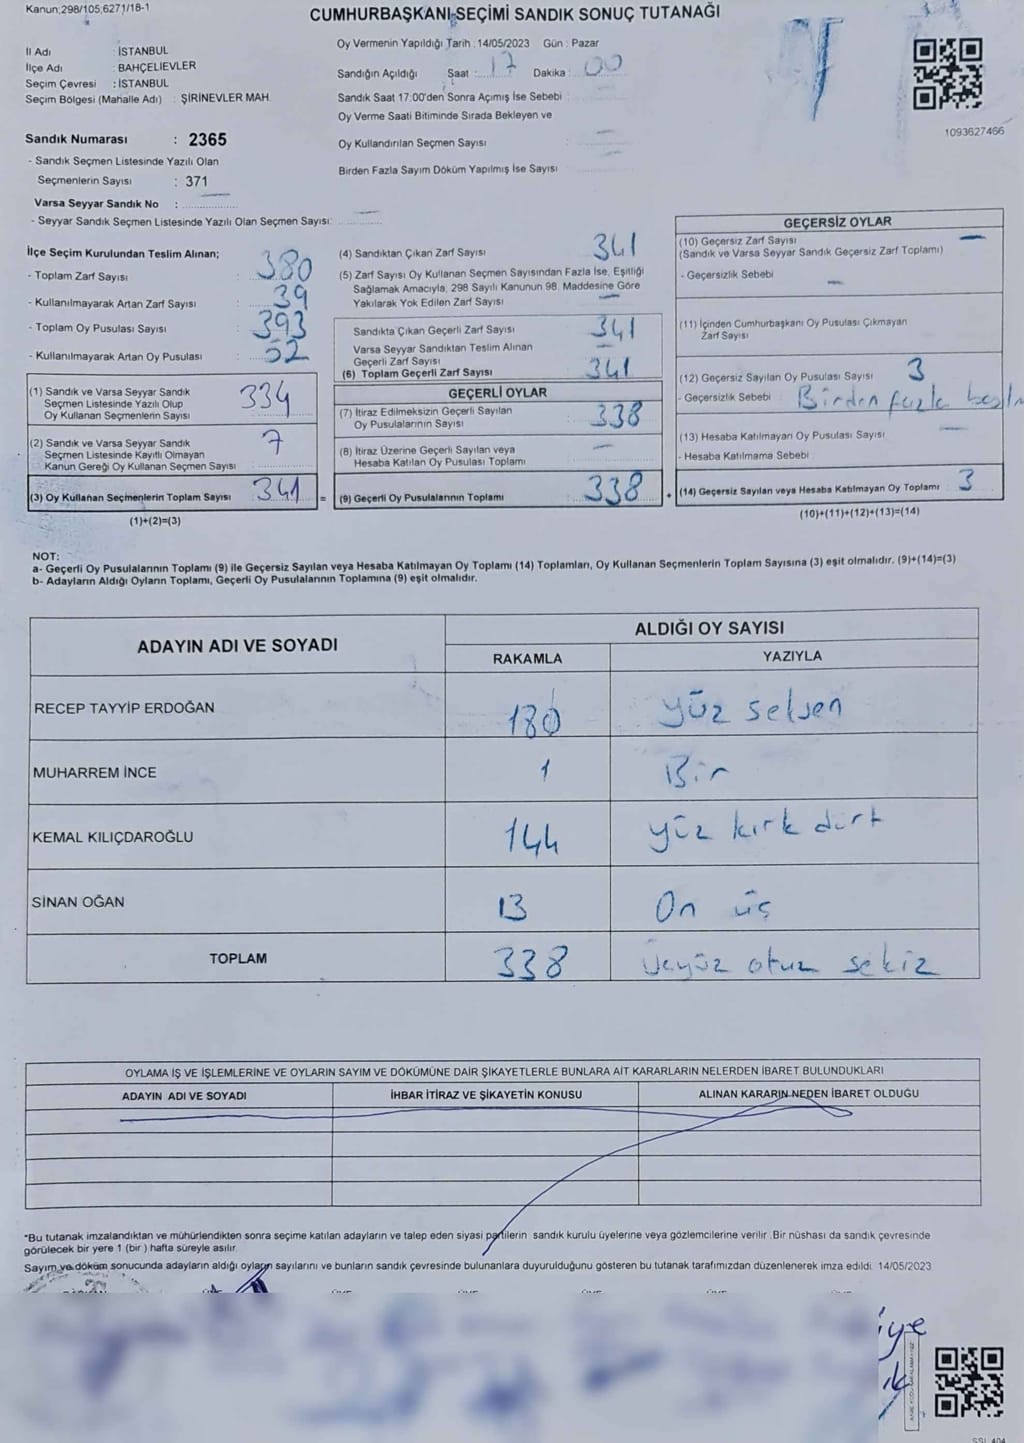 Kanun;298/105;6271/18-1
CUMHURBAŞKANI SEÇİMİ SANDIK SONUÇ TUTANAĞI
İl Adı : İSTANBUL
İlçe Adı : BAHÇELİEVLER
Seçim Çevresi : İSTANBUL
Seçim Bölgesi (Mahalle Adı) : ŞİRİNEVLER MAH.
Sandık Numarası : 2365
- Sandık Seçmen Listesinde Yazılı Olan
Seçmenlerin Sayısı : 371
Varsa Seyyar Sandık No :
- Seyyar Sandık Seçmen Listesinde Yazılı Olan Seçmen Sayısı:
Oy Vermenin Yapıldığı Tarih : 14/05/2023 Gün : Pazar
Sandığın Açıldığı Saat : 17 Dakika : 00
Sandık Saat 17:00'den Sonra Açımış İse Sebebi :
Oy Verme Saati Bitiminde Sırada Bekleyen ve
Oy Kullandırılan Seçmen Sayısı :
Birden Fazla Sayım Döküm Yapılmış İse Sayısı :
1093627466
İlçe Seçim Kurulundan Teslim Alınan;
- Toplam Zarf Sayısı : 380
- Kullanılmayarak Artan Zarf Sayısı : 39
- Toplam Oy Pusulası Sayısı : 393
- Kullanılmayarak Artan Oy Pusulası : 52
(1) Sandık ve Varsa Seyyar Sandık
Seçmen Listesinde Yazılı Olup
Oy Kullanan Seçmenlerin Sayısı 334
(2) Sandık ve Varsa Seyyar Sandık
Seçmen Listesinde Kayıtlı Olmayan
Kanun Gereği Oy Kullanan Seçmen Sayısı 7
(3) Oy Kullanan Seçmenlerin Toplam Sayısı 341
(1)+(2)=(3)
(4) Sandıktan Çıkan Zarf Sayısı : 341
(5) Zarf Sayısı Oy Kullanan Seçmen Sayısından Fazla İse, Eşitliği
Sağlamak Amacıyla, 298 Sayılı Kanunun 98. Maddesine Göre
Yakılarak Yok Edilen Zarf Sayısı : —
Sandıkta Çıkan Geçerli Zarf Sayısı : 341
Varsa Seyyar Sandıktan Teslim Alınan
Geçerli Zarf Sayısı : —
(6) Toplam Geçerli Zarf Sayısı : 341
GEÇERLİ OYLAR
(7) İtiraz Edilmeksizin Geçerli Sayılan
Oy Pusulalarının Sayısı : 338
(8) İtiraz Üzerine Geçerli Sayılan veya
Hesaba Katılan Oy Pusulası Toplamı : —
= (9) Geçerli Oy Pusulalarının Toplamı : 338
GEÇERSİZ OYLAR
(10) Geçersiz Zarf Sayısı : —
(Sandık ve Varsa Seyyar Sandık Geçersiz Zarf Toplamı)
- Geçersizlik Sebebi : —
(11) İçinden Cumhurbaşkanı Oy Pusulası Çıkmayan
Zarf Sayısı :
(12) Geçersiz Sayılan Oy Pusulası Sayısı : 3
- Geçersizlik Sebebi : Birden fazla
(13) Hesaba Katılmayan Oy Pusulası Sayısı : —
- Hesaba Katılmama Sebebi :
+ (14) Geçersiz Sayılan veya Hesaba Katılmayan Oy Toplamı : 3
(10)+(11)+(12)+(13)=(14)
NOT:
a- Geçerli Oy Pusulalarının Toplamı (9) ile Geçersiz Sayılan veya Hesaba Katılmayan Oy Toplamı (14) Toplamları, Oy Kullanan Seçmenlerin Toplam Sayısına (3) eşit olmalıdır. (9)+(14)=(3)
b- Adayların Aldığı Oyların Toplamı, Geçerli Oy Pusulalarının Toplamına (9) eşit olmalıdır.
ADAYIN ADI VE SOYADI ALDIĞI OY SAYISI
RAKAMLA YAZIYLA
RECEP TAYYİP ERDOĞAN 180 yüz seksen
MUHARREM İNCE 1 Bir
KEMAL KILIÇDAROĞLU 144 yüz kırk dört
SİNAN OĞAN 13 On üç
TOPLAM 338 üçyüz otuz sekiz
OYLAMA İŞ VE İŞLEMLERİNE VE OYLARIN SAYIM VE DÖKÜMÜNE DAİR ŞİKAYETLERLE BUNLARA AİT KARARLARIN NELERDEN İBARET BULUNDUKLARI
ADAYIN ADI VE SOYADI İHBAR İTİRAZ VE ŞİKAYETİN KONUSU ALINAN KARARIN NEDEN İBARET OLDUĞU
*Bu tutanak imzalandıktan ve mühürlendikten sonra seçime katılan adayların ve talep eden siyasi partilerin sandık kurulu üyelerine veya gözlemcilerine verilir .Bir nüshası da sandık çevresinde
görülecek bir yere 1 (bir ) hafta süreyle asılır.
Sayım ve döküm sonucunda adayların aldığı oyların sayılarını ve bunların sandık çevresinde bulunanlara duyurulduğunu gösteren bu tutanak tarafımızdan düzenlenerek imza edildi. 14/05/2023